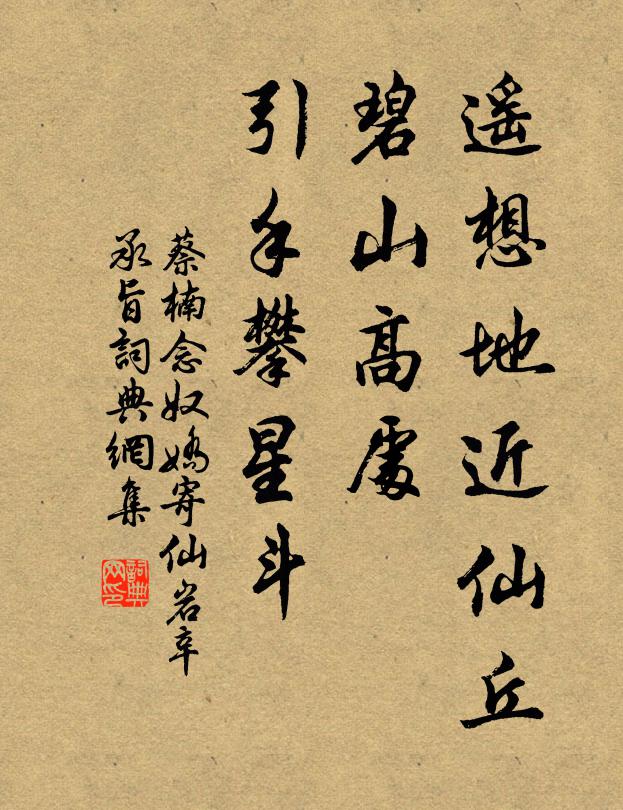 遥想地近仙丘
碧山高處
引手攀星斗
蔡楠念奴嬌寄仙岩辛
承旨詞典網集
詞典
网印